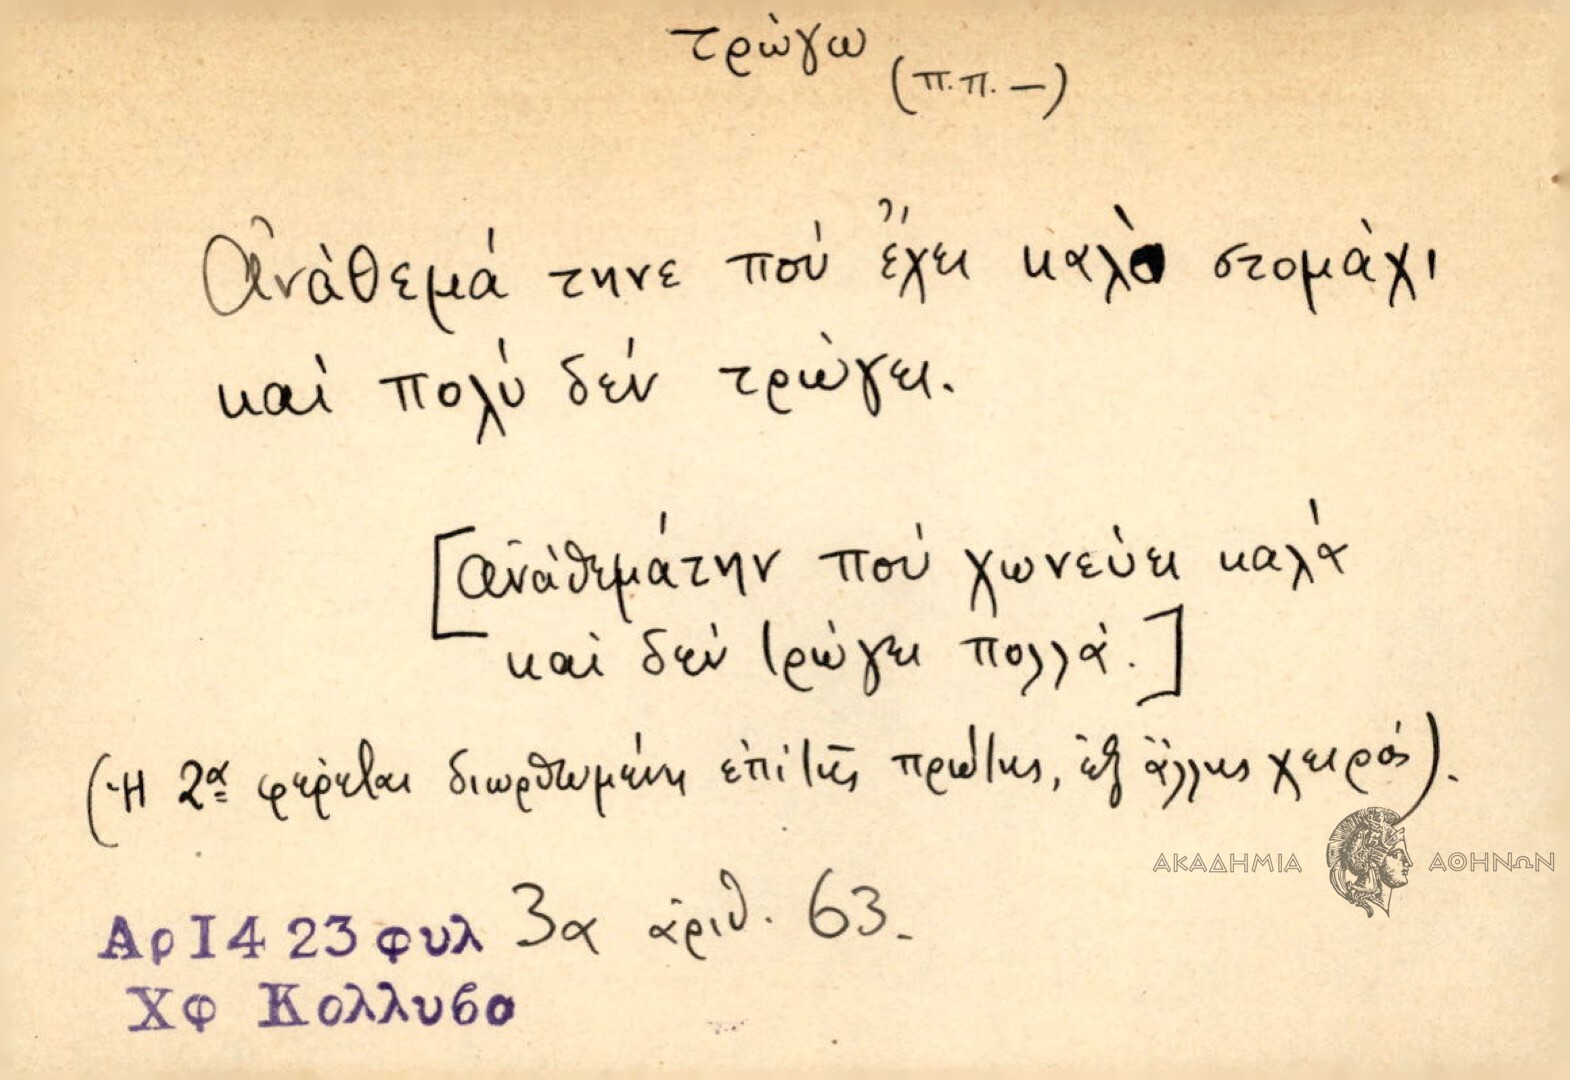 τρώγω
(π.π. —)
Ἀνάθεμά τηνε πού ἔχει καλὸ στομάχι
καί πολύ δέν τρώγει.
[ἀνάθεμάτην πού χωνεύει καλά
καὶ δέν τρώγει πολλά.]
(Ἡ 2α φέρεται διωρθωμένη ἐπί τῆς πρώτης, ἐξ ἄλλης χειρός).
ΑΚΑΔΗΜΙΑ ΑΘΗΝΩΝ
Αρ1423 φυλ 3α ἀριθ. 63.
Χφ Κολλυβα